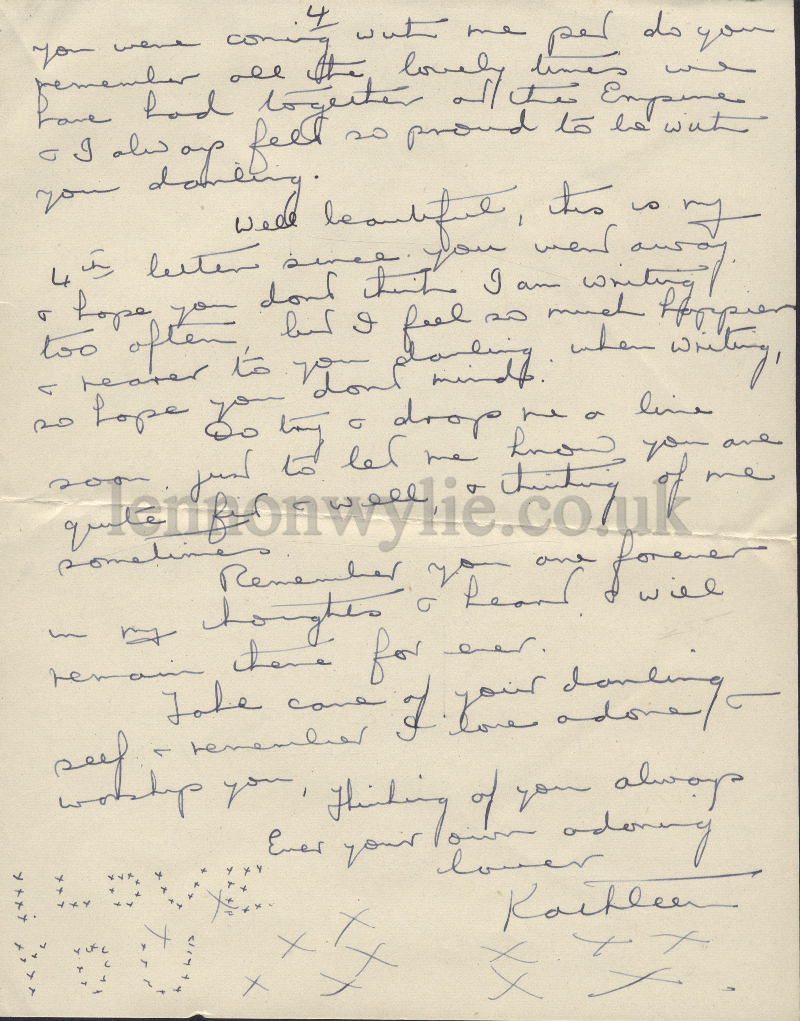 4
you were coming with me pet do you
remember all the lovely times we
have had together at the Empire
& I always felt so proud to be with
you darling.
Well beautiful, this is my
4th letter since you went away
& hope you dont think I am writing
too often, but I feel so much happier
& nearer to you darling when writing,
so hope you dont mind.
Do try & drop me a line
soon just to let me know you are
quite fit & well, & thinking of me
sometimes.
Remember you are forever
in my thoughts & heart & will
remain there for ever.
Take care of your darling
self & remember I love adore &
worship you, thinking of you always
Ever your own adoring
lover
Kathleen
I LOVE
YOU
lennonwylie.co.uk